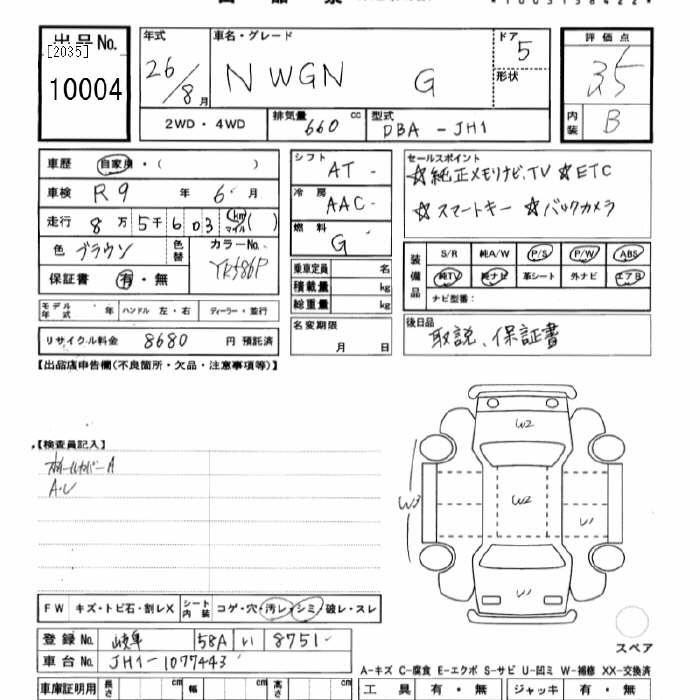 出品No.
[2035]
10004
年式 26/8月
車名・グレード N WGN G
ドア 5
形状
評価点 3.5
内装 B
2WD・4WD
排気量 660 cc
型式 DBA-JH1
車歴 自家用・( )
車検 R9 年 6 月
走行 8万5千603 (km マイル)( )
色 ブラウン 色替 カラーNo. YR586P
保証書 有・無
モデル年式 年 ハンドル 左・右 ディーラー・並行
リサイクル料金 8680 円 預託済
シフト AT-
冷房 AAC-
燃料 G
乗車定員 名
積載量 kg
総重量 kg
名変期限
月 日
セールスポイント
☆純正メモリナビ、TV ☆ETC
☆スマートキー ☆バックカメラ
装備品
S/R 純A/W P/S P/W ABS
純TV 純ナビ 革シート 外ナビ エアB
ナビ型番:
後日品
取説、保証書
【出品店申告欄(不良箇所・欠品・注意事項等)】
【検査員記入】
ホイールカバーA
A・U
W2
W3
W2
U1
W2
U1
スペア
FW キズ・トビ石・割レX シート内装 コゲ・穴・汚レ・シミ・破レ・スレ
登録No. 岐阜 58A い 8751
車台No. JH1-1077443
A-キズ C-腐食 E-エクボ S-サビ U-凹ミ W-補修 XX-交換済
車庫証明用 長さ cm 幅 cm 高さ cm
工具 有・無 ジャッキ 有・無